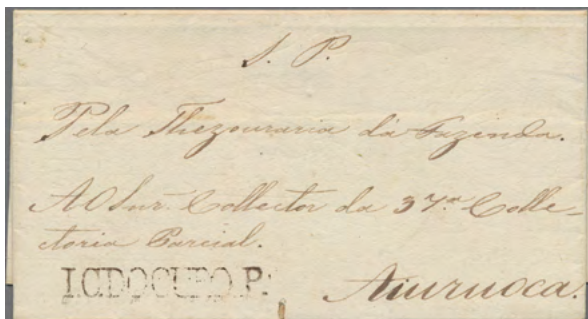 S. P.
Pela Thezouraria da Fazenda.
Ao Snr. Collector da 37.ª Colle-
ctoria Parcial.
Aiuruoca.